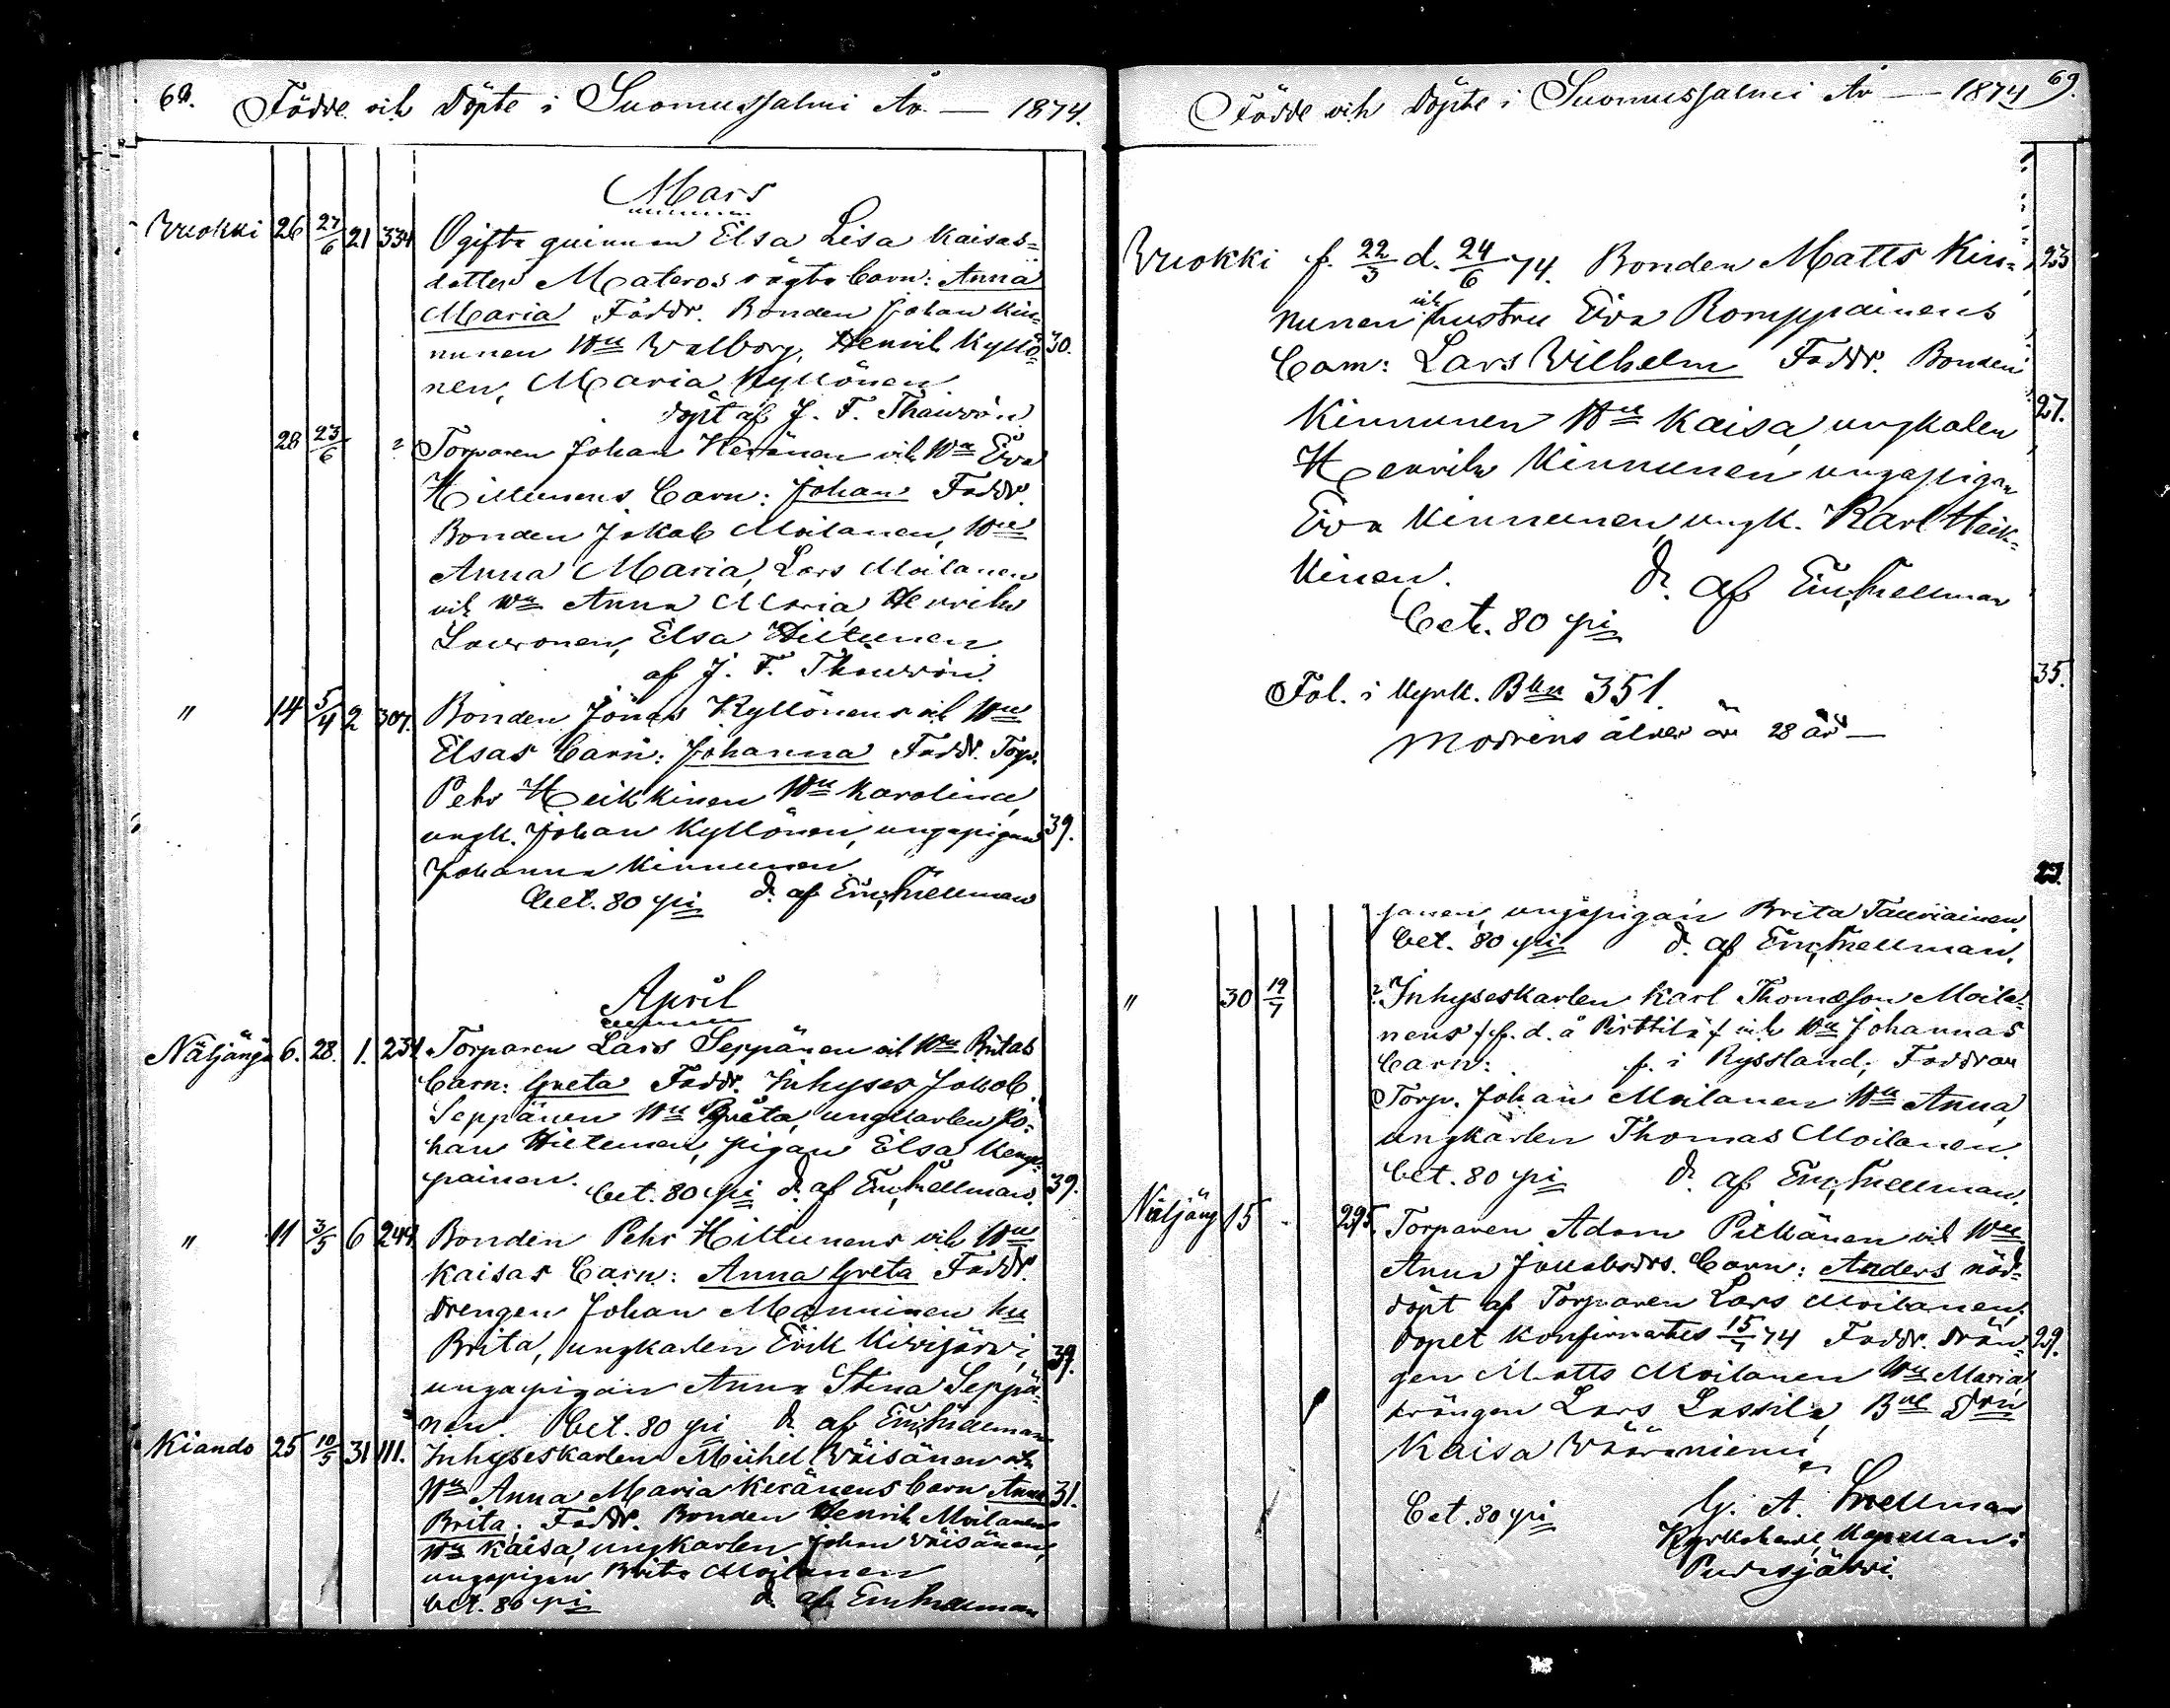 68. Födde och Döpte i Suomussalmi År — 1874.
Mars
Wuokki 26 27/6 21 334 Ogifta quinnan Elsa Lisa Kaisas=
dotter Materos oägta barn: Anna
Maria Faddr. Bonden Johan Kin=
nunen Hu Walborg, Henrik Kyllö= 30.
nen, Maria Kyllönen
döpt af J. F. Thauvón
28 23/6 ? Torparen Johan Keränen och Hu Eva
Hiltunens barn: Johan Faddr.
Bonden Jakob Moilanen, Hu
Anna Maria, Lars Moilanen
och Hu Anna Maria, Henrik
Lauronen, Elsa Hiltunen.
af J. F. Thauvón.
" 14 5/4 2 307. Bonden Jonas Kyllönens och Hu
Elsas barn: Johanna Faddr. Torp.
Pehr Heikkinen Hu Karolina,
ungk. Johan Kyllönen, ungapigan 39.
Johanna Kinnunen
bet. 80 pi d. af Em. Snellman
April
Näljänge 6. 28. 1. 231. Torparen Lars Seppänen och Hu Britas
barn: Greta Faddr. Inhyses Jakob
Seppänen Hu Greta, ungkarlen Jo=
han Hiltunen, pigan Elsa Kemp=
painen. bet. 80 pi d. af Em. Snellman. 39.
" 11 3/5 6 244 Bonden Pehr Hiltunens och Hu
Kaisas barn: Anna Greta Faddr.
Drengen Johan Manninen hu
Brita, ungkarlen Erik Kivijärvi, 39.
ungapigan Anna Stina Seppä=
nen. bet. 80 pi d. af Em. Snellman
Kiando 25 10/5 31 111. Inhyseskarlen Michel Väisänen och
Hu Anna Maria Keränens barn Anna 31.
Brita; Faddr. Bonden Henrik Moilanen
Hu Kaisa, ungkarlen Johan Väisänen,
ungapigan Brita Moilanen
bet. 80 pi d. af Em. Snellman
Födde och Döpte i Suomussalmi År — 1874 69.
Wuokki f. 22/3 d. 24/6 74. Bonden Matts Kin= 23
nunen och hustru Eva Romppainens
barn: Lars Wilhelm Faddr. Bonden
Kinnunen Hu Kaisa, ungkalen 27.
Henrik Kinnunen, ungapigan
Eva Kinnunen, ungk. Karl Heik=
kinen. d. af Em. Snellman
bet. 80 pi
35.
Fol. i Kyrk. Bkn 351.
Modrens ålder är 28 år —
23.
janen, ungapigan Brita Tauriainen,
bet. 80 pi d. af Em. Snellman.
" 30 19/7 ? Inhyseskarlen Karl Thomæson Moila=
nens / f. d. å Pirttilä / och Hu Johannas
barn: f. i Ryssland; Faddrar
Torp. Johan Moilanen Hu Anna,
ungkarlen Thomas Moilanen.
bet. 80 pi d. af Em. Snellman.
Näljäng 15 - 295. Torparen Adam Pitkänen och Hu
Anna Jakobsdrs. barn: Anders nöd=
döpt af Torparen Lars Moilanen,
dopet konfirmertes 15/7 74 Faddr. Drän= 29.
gen Matts Moilanen Hu Maria,
drängen Lars Lassila, B Drn
Kaisa Vääräniemi
bet. 80 pi G. A. Snellman
Kyrkoherde, Kapellan i
Pudasjärvi.